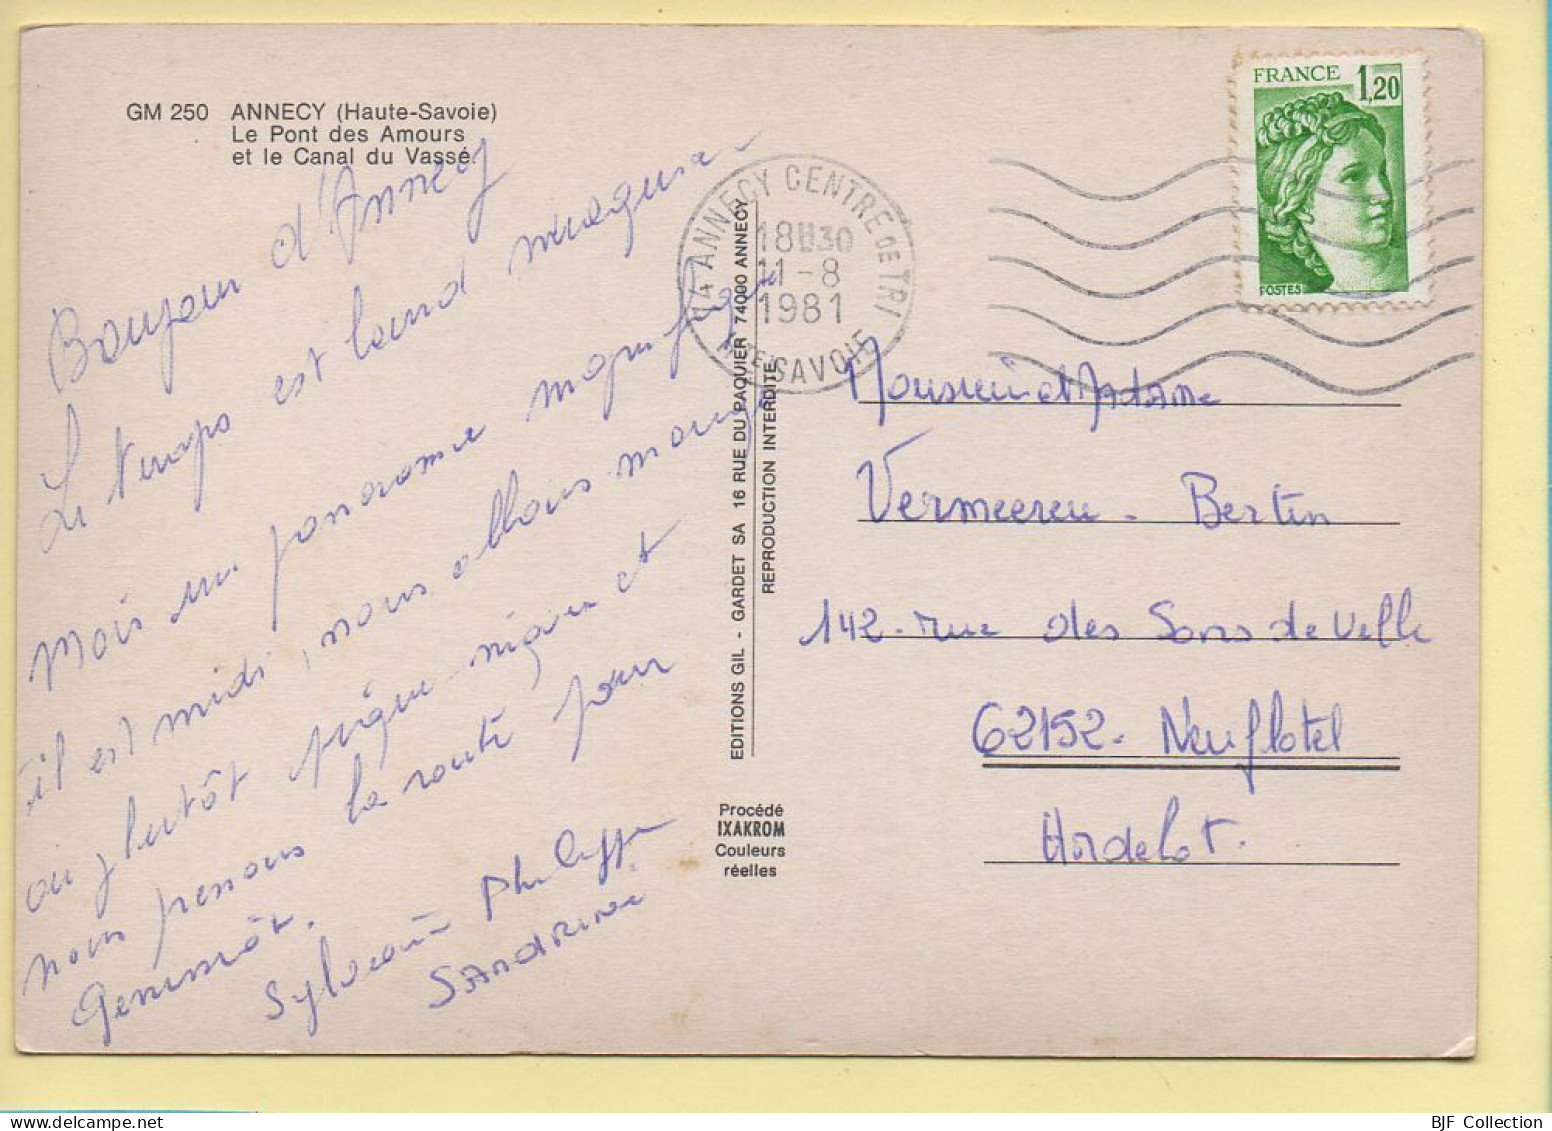 GM 250 ANNECY (Haute-Savoie)
Le Pont des Amours
et le Canal du Vassé.
Bonjour d'Annecy
Le temps est lourd nuageux
Mais un panorama magnifique
il est midi, nous allons manger
ou plutôt pique nique et
nous prenons la route pour
Sylvain Philippe
SANDRINE
74 ANNECY CENTRE DE TRI
18H30
11-8
1981
HTE SAVOIE
FRANCE 1,20
POSTES
EDITIONS GIL - GARDET SA 16 RUE DU PAQUIER 74000 ANNECY
REPRODUCTION INTERDITE
Procédé
IXAKROM
Couleurs
réelles
Monsieur et MAdAme
Vermeeren - Bertin
142 - rue des Sons de Ville
62152 - Neuflotel
Hardelot.
BJF Collection